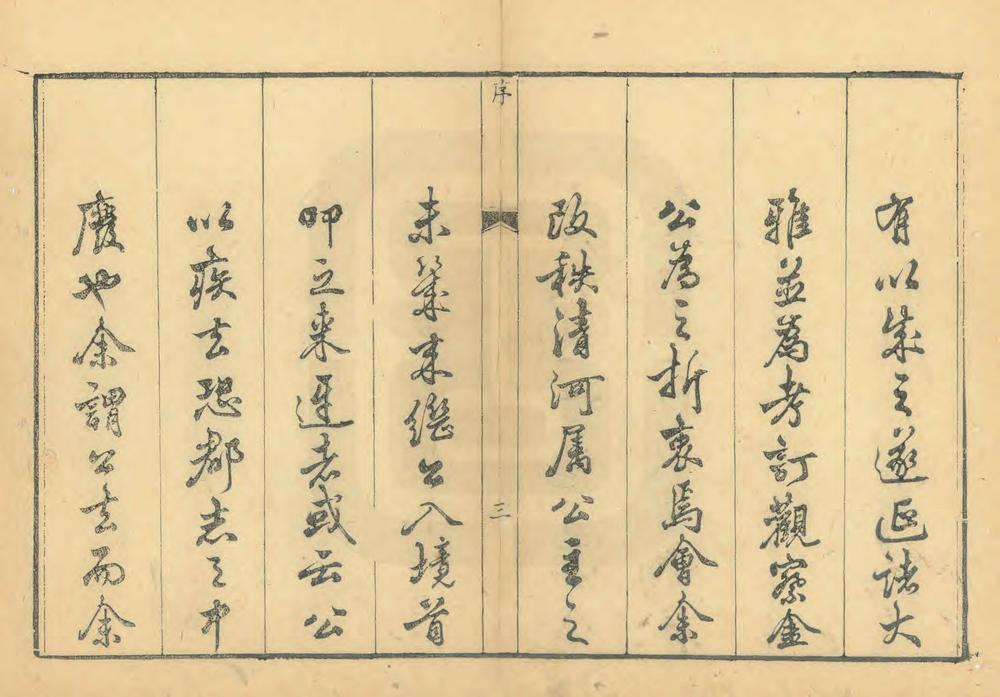 有以成之遂延諸大
雅並為考訂觀察金
公為之折衷焉會余
改秩清河屬公主之
序
三
未幾來繼公入境首
叩之來遲者或云公
以疾去恐郡志之中
廢也余謂公去而余